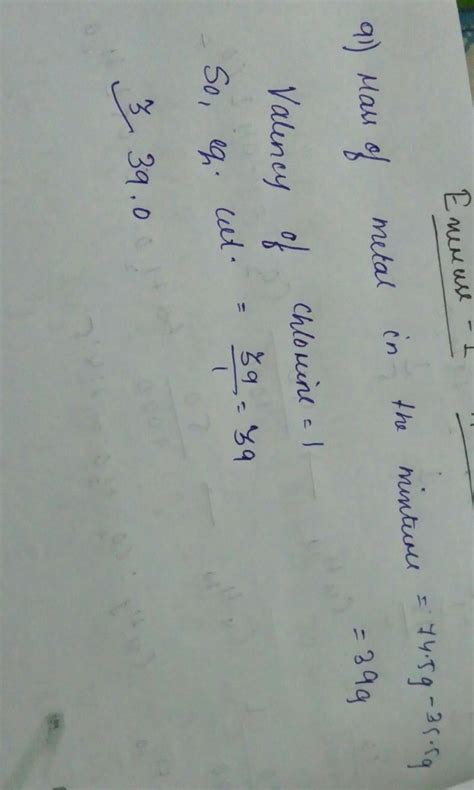 Exercise - I
Q1) Mass of metal in the mixture = 74.5g - 35.5g
= 39g
Valency of chlorine = 1
So, eq. wt. = 39/1 = 39
3 39.0